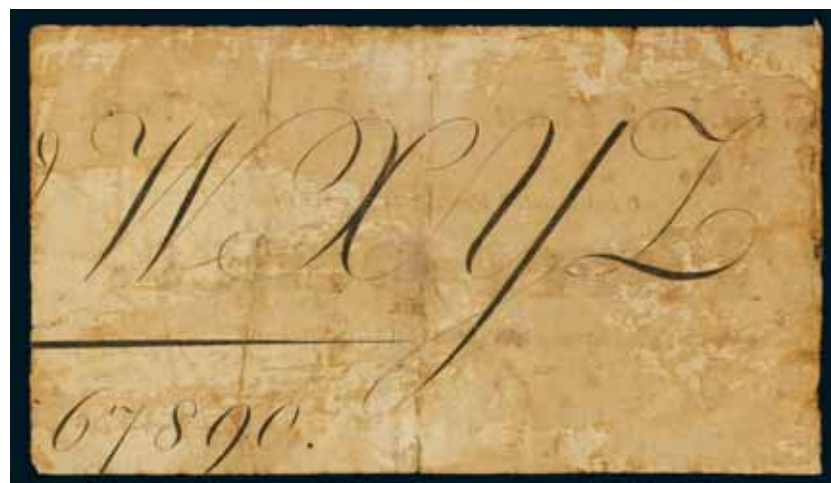 W X Y Z
6 7 8 9 0.